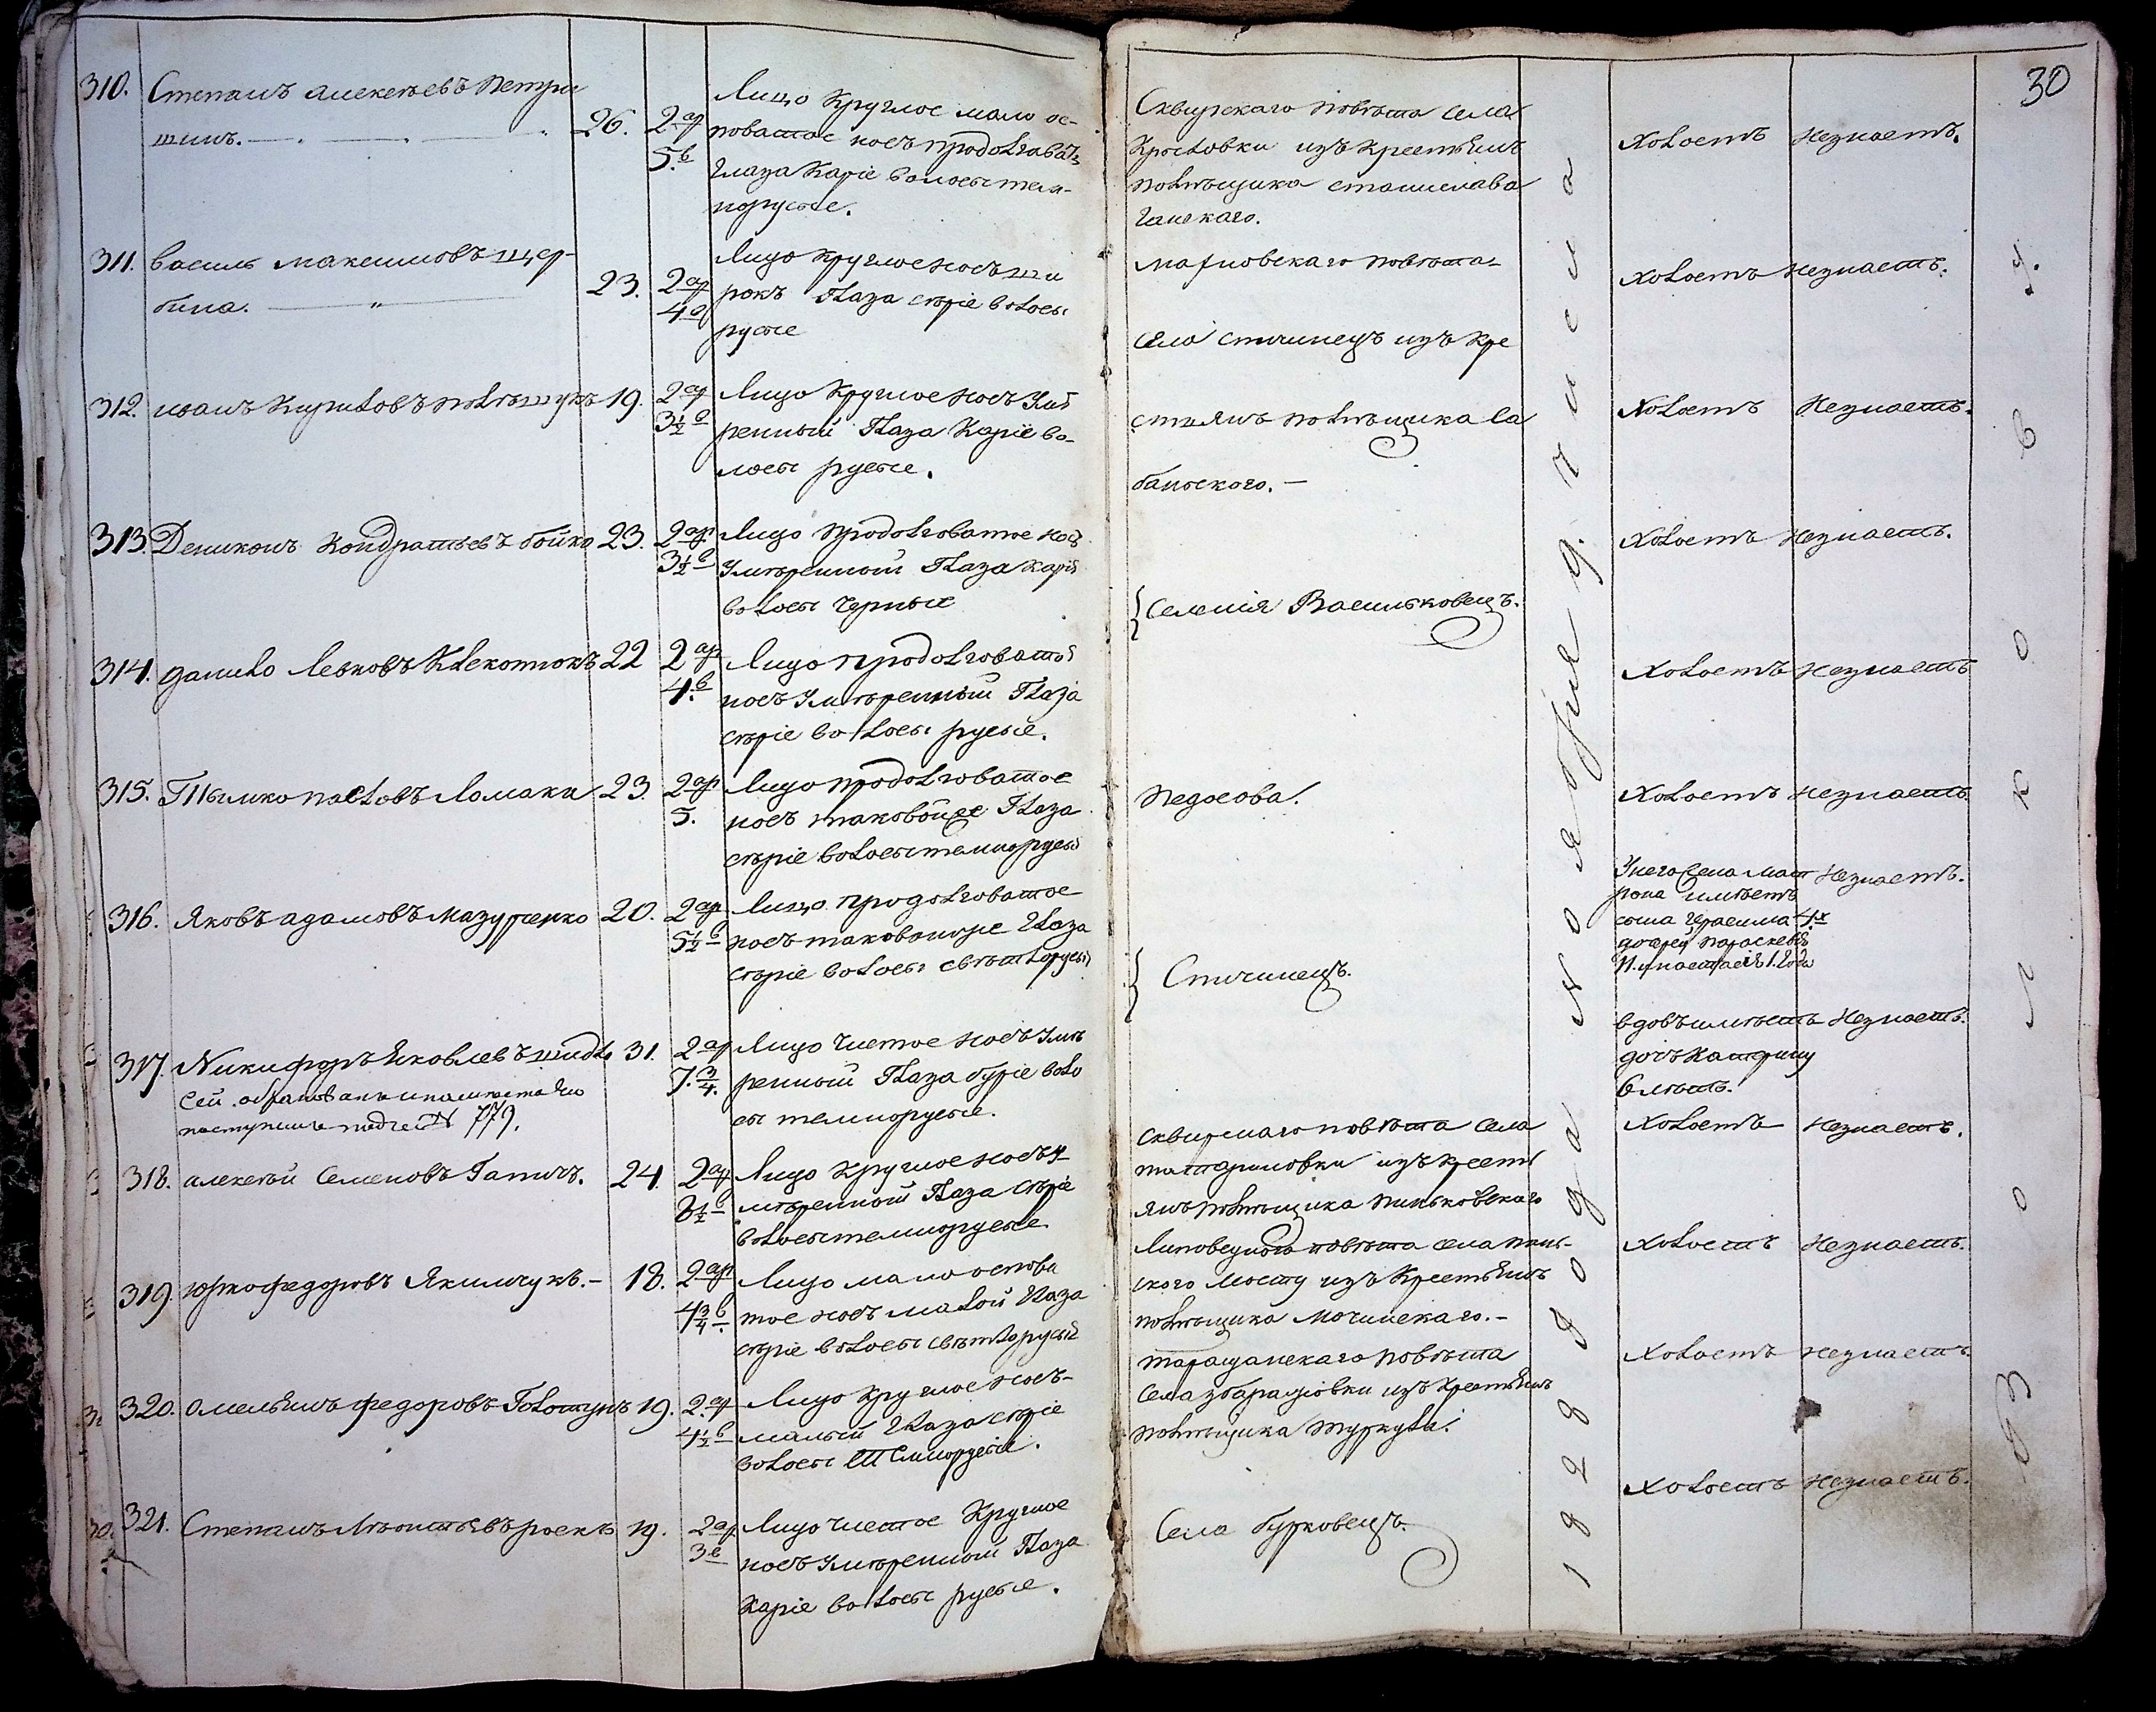 30
310. Степанъ Алексѣевъ Петри
шинъ. 26. 2 ар 5. в
Лицо круглое мало ос-
поватое носъ продолговатъ
глаза каріе волосы тем-
норусые.
Сквирскаго повѣта села
из крестьянъ
помѣщика Станислава
Холостъ Незнаетъ.
311. Василь Максимовъ Щер-
бина. 23. 2 ар 4 в
Лицо круглое носъ ши
рокъ глаза сѣріе волосы
русые
повѣта
села Стичинецъ изъ кре
Холостъ Незнаетъ.
312. Иванъ Кириловъ 19. 2 ар 3 1/2 в
Лицо круглое носъ умѣ
ренный глаза каріе во-
лосы русые.
стьянъ помѣщика Са
банского. —
Холостъ Незнаетъ.
313. Кондратьевъ Бойко 23. 2 ар 3 1/2 в
Лицо продолговатое носъ
умѣренный глаза каріе
волосы черные
Селенія Васильковецъ.
Холостъ Незнаетъ.
314. Данило Левковъ Клекотюкъ 22 2 ар 4. в
Лицо продолговатое
носъ умѣренный глаза
сѣріе волосы русые.
Холостъ Незнаетъ
315. Павловъ Ломака 23. 2 ар 5.
Лицо продолговатое
носъ таковой же глаза
сѣріе волосы темнорусые
Федосова.
Холостъ Незнаетъ.
316. Яковъ Адамовъ Мазуренко 20. 2 ар 5 1/2 в
Лицо продолговатое
носъ таковойже глаза
сѣріе волосы свѣтлорусые
Стичинецъ.
Унего жена Мат
рона имѣетъ
сына Герасима 4х
дочерей Параскевію
Незнаетъ.
317. Никифоръ Яковлевъ 31. 2 ар 7. 3/4.
поступилъ подъ № 779.
Лицо чистое носъ умѣ
ренный глаза буріе воло
сы темнорусые.
вдовъ имѣетъ
дочь Катерину
6 лѣтъ.
Незнаетъ.
318. Алексѣй Семеновъ Гатичъ. 24. 2 ар 3 1/2 в
Лицо круглое носъ у-
мѣренный глаза сѣріе
волосы темнорусые.
Сквирскаго повѣта села
Татариновки изъ кресть
янъ помѣщика Пиньковскаго
Холостъ Незнаетъ.
319. Юрко Федоровъ Якимчукъ. — 18. 2 ар 4 3/4 в.
Лицо мало оспова
тое носъ малой глаза
сѣріе волосы свѣтлорусые
Липовецкого повѣта села
ского Мосту изъ крестьянъ
помѣщика Мочинскаго. —
Холостъ Незнаетъ.
320. Омельянъ Федоровъ 19. 2. ар 4 1/2 в
Лицо круглое носъ-
малый глаза сѣріе
волосы темнорусые.
Таращанскаго повѣта
села Збаражовки изъ крестьянъ
помѣщика Туркула.
Холостъ Незнаетъ.
321. Степанъ 19. 2 ар 3 в
Лицо чистое круглое
носъ умѣренный глаза
каріе волосы русые.
Села Бурковецъ.
Холостъ Незнаетъ.
1828 года Ноября 9. числа